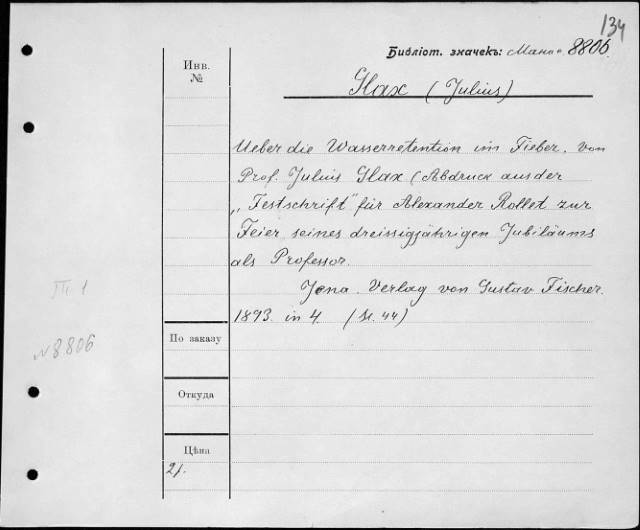 134
Библіот. значекъ: 8806.
Инв.
№
Glax (Julius)
Ueber die Wasserretention im Fieber, von
Prof. Julius Glax (Abdruck aus der
„Festschrift" für Alexander Rollet zur
Feier seines dreissigjährigen Jubiläums
als Professor.
Jena. Verlag von Gustav Fischer.
1893. in 4. (st. 44)
№ 8806
По заказу
Откуда
Цѣна